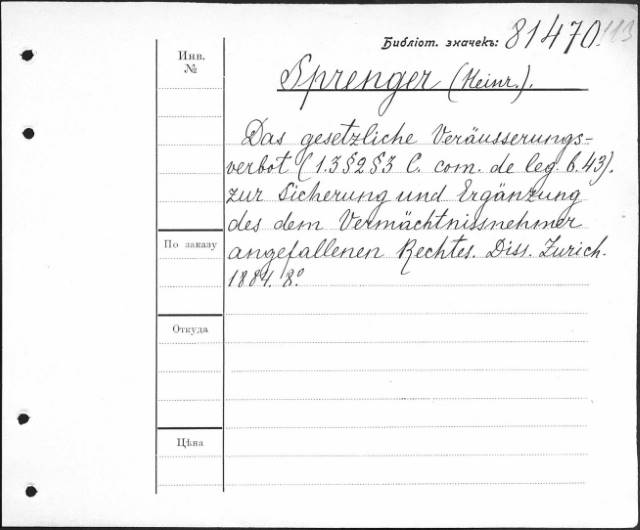 Библіот. значекъ: 81470. 113
Инв. №
Sprenger (Heinr.).
Das gesetzliche Veräusserungs-
verbot (l.3 § 2 § 3 C. com. de leg. 6.43).
zur Sicherung und Ergänzung
des dem Vermächtnissnehmer
По заказу
angefallenen Rechtes. Diss. Zurich.
1884. 8º.
Откуда
Цѣна